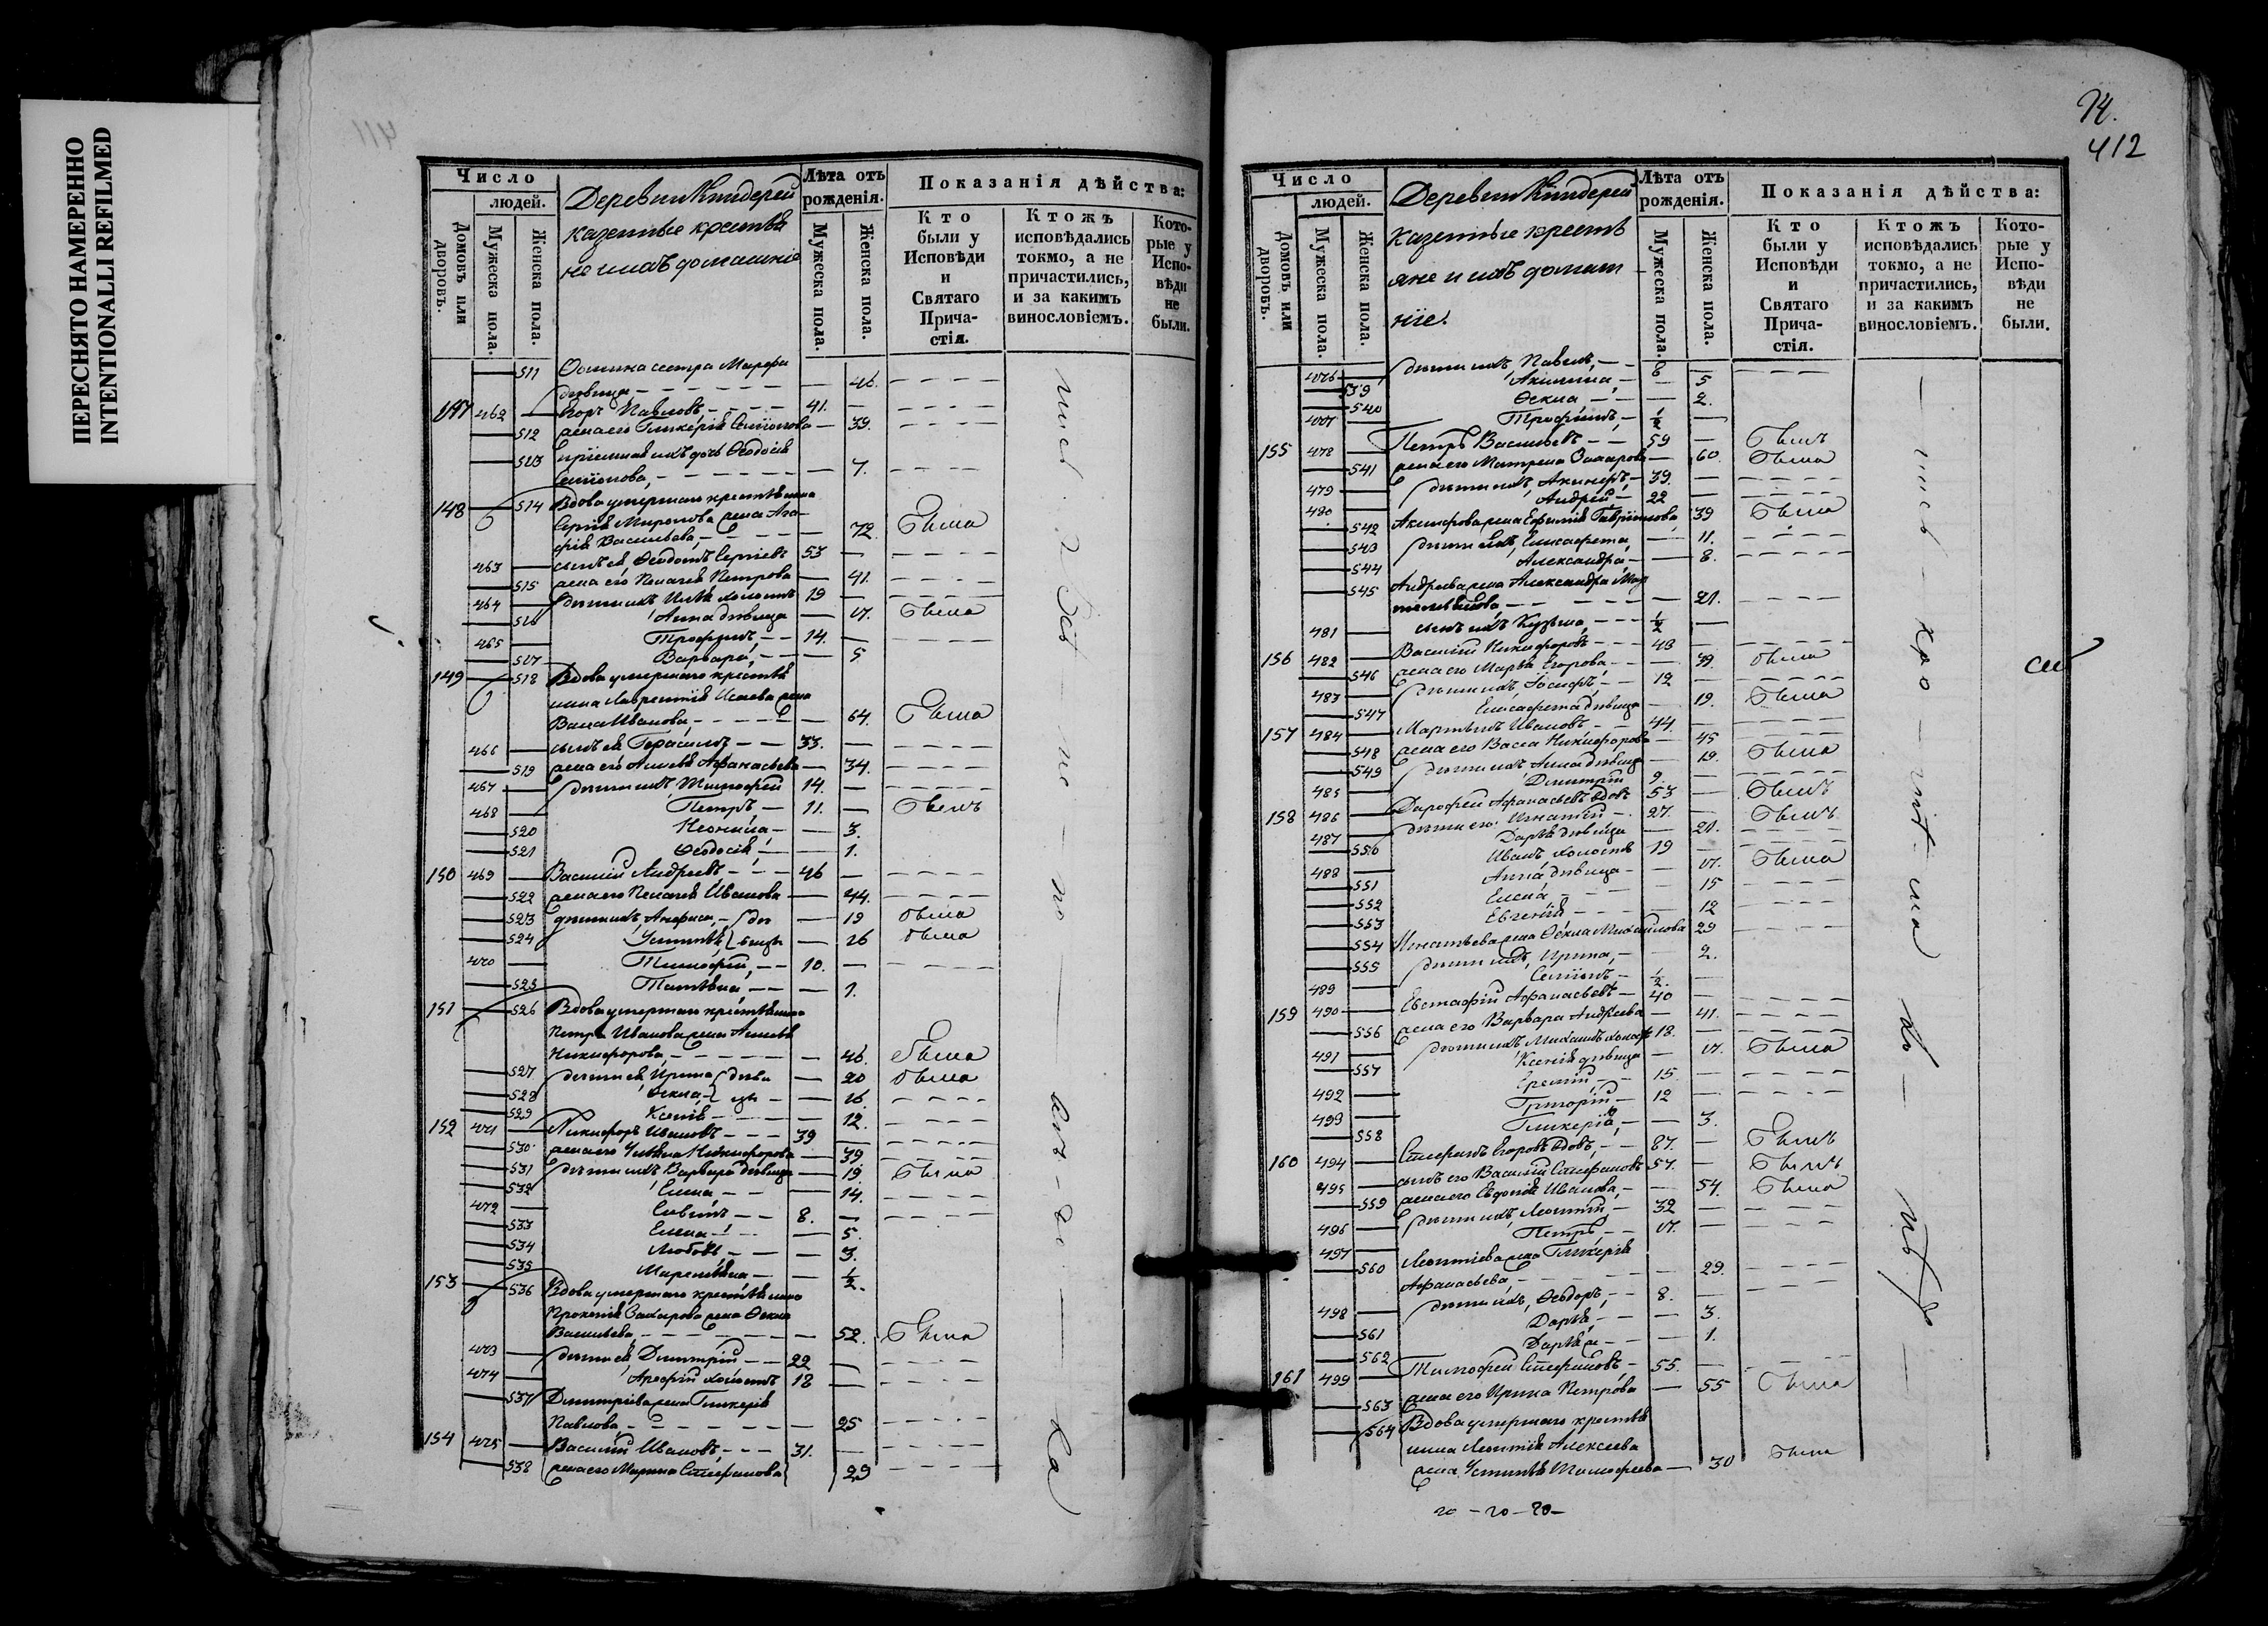 ПЕРЕСНЯТО НАМЕРЕННО
INTENTIONALLI REFILMED
411
Число
людей.
Домовъ или дворовъ.
Мужеска пола.
Женска пола.
Деревни Киндерей
казенные крестья
не и ихъ домашніе
Лѣта отъ рожденія.
Мужеска пола.
Женска пола.
Показанія дѣйства:
Кто были у Исповѣди и Святаго Прича-стія.
Ктожъ исповѣдались токмо, а не причастились, и за какимъ винословіемъ.
Кото-рые у Испо-вѣди не были.
511 сестра Марфа
дѣвица — 46.
147 462 Егоръ Павловъ 41.
512 жена его Гликерія Симіонова 39.
513 пріемная ихъ дочь Ѳеодосія
Симіонова, 7.
148 514 Вдова умершаго крестьянина
Сергія Миронова жена Ага-
фія Васильева, 72. была
463 сынъ ея Ѳеодотъ Сергіевъ 53
515 жена его Пелагея Петрова 41.
464 дѣти ихъ Илья холостъ 19
516 Анна дѣвица 17. была
465 Трофимъ 14.
517 Варвара, 5
149 518 Вдова умершаго крестья
нина Лаврентія Исаева жена
Васса Иванова, 64. была
466 сынъ ея Герасимъ 33.
519 жена его Афанасьева 34.
467 дѣти ихъ Тимофей 14.
468 Петръ 11. былъ
520 Неонила 3.
521 Ѳеодосія 1.
150 469 Василій Андреевъ 46
522 жена его Пелагея Иванова 44.
523 дѣти ихъ, Анфиса, дѣ 19 была
524 Устинья, вицы 16 была
470 Тимофей, 10.
525 Татьяна 1.
151 526 Вдова умершаго крестьянина
Петра Иванова жена
Никифорова 46. была
527 дѣти ея Ирина дѣви 20 была
528 Ѳекла цы 16
529 Ксенія 12.
152 471 Никифоръ Ивановъ 39
530 жена его Ульяна Никифорова 39
531 дѣти ихъ Варвара дѣвица 19 была
532 Елена, 14.
472 8.
533 Елена 5.
534 Любовь 3.
535 1/2.
153 536 Вдова умершаго крестьянина
Прокопія Захарова жена Ѳекла
Васильева, 52. была
473 дѣти ея, Димитрій 22
474 холостъ 18
537 Димитріева жена Гликерія
Павлова, 25
154 475 Василій Ивановъ 31.
538 жена его Марина Стефанова 29
74.
412
Число
людей.
Домовъ или дворовъ.
Мужеска пола.
Женска пола.
Деревни Киндерей
казенные кресть
яне и ихъ домаш
ніе.
Лѣта отъ рожденія.
Мужеска пола.
Женска пола.
Показанія дѣйства:
Кто были у Исповѣди и Святаго Прича-стія.
Ктожъ исповѣдались токмо, а не причастились, и за какимъ винословіемъ.
Кото-рые у Испо-вѣди не были.
476 дѣти ихъ, Павелъ, 8
539 Акилина, 5
540 Ѳекла 2.
477 Трофимъ, 1/2
155 478 Петръ Васильевъ 59 былъ
541 жена его Матрена Захарова 60. была
479 дѣти ихъ, 39.
480 Андрей 22
542 жена Евфимія Гавріилова 39 была
543 дѣти ихъ, Елисавета, 11.
544 Александра 8.
545 Андреева жена Александра Мар
21.
481 сынъ ихъ Кузьма, 1/2
156 482 Василій Никифоровъ 43
546 жена его Марья Егорова, 39. была
483 дѣти ихъ, Іосифъ, 12
547 Елисавета дѣвица 19. была
157 484 Мартынъ Ивановъ 44.
548 жена его Васса Никифорова 45
549 дѣти ихъ Анна дѣвица 19. была
485 Димитрій 9.
158 486 Дарофей Афанасьевъ вдовъ 53 былъ
487 дѣти его: Игнатій 27. былъ
550 Дарья дѣвица 21.
488 Иванъ холостъ 19
551 Анна дѣвица 17. была
552 Елена 15
553 Евгенія 12
554 Игнатьева жена Ѳекла Михайлова 29
555 дѣти ихъ, Ирина, 2.
489 Симіонъ, 1/2.
159 490 Евстафій Афанасьевъ 40
556 жена его Варвара Андреева 41.
491 дѣти ихъ Михаилъ холостъ 18.
557 Ксенія дѣвица 17. была
492 15.
493 Григорій 12
558 Гликерія, 3.
160 494 Стефанъ Егоровъ вдовъ, 87. былъ
495 сынъ его Василій Стефановъ 57. былъ
559 жена его Евдокія Иванова, 54. была
496 дѣти ихъ, Леонтій, 32
497 Петръ 17.
560 Леонтіева жена Гликерія
Афанасьева, 29.
498 дѣти ихъ, Ѳеодоръ, 8.
561 Дарья, 3.
562 Дарья 1.
161 499 Тимофей Стефановъ 55.
563 жена его Ирина Петрова 55 была
564 Вдова умершаго крестья
нина Леонтія Алексеева
жена Устинья Тимофеева 30 была
20 – 20 – 20 –